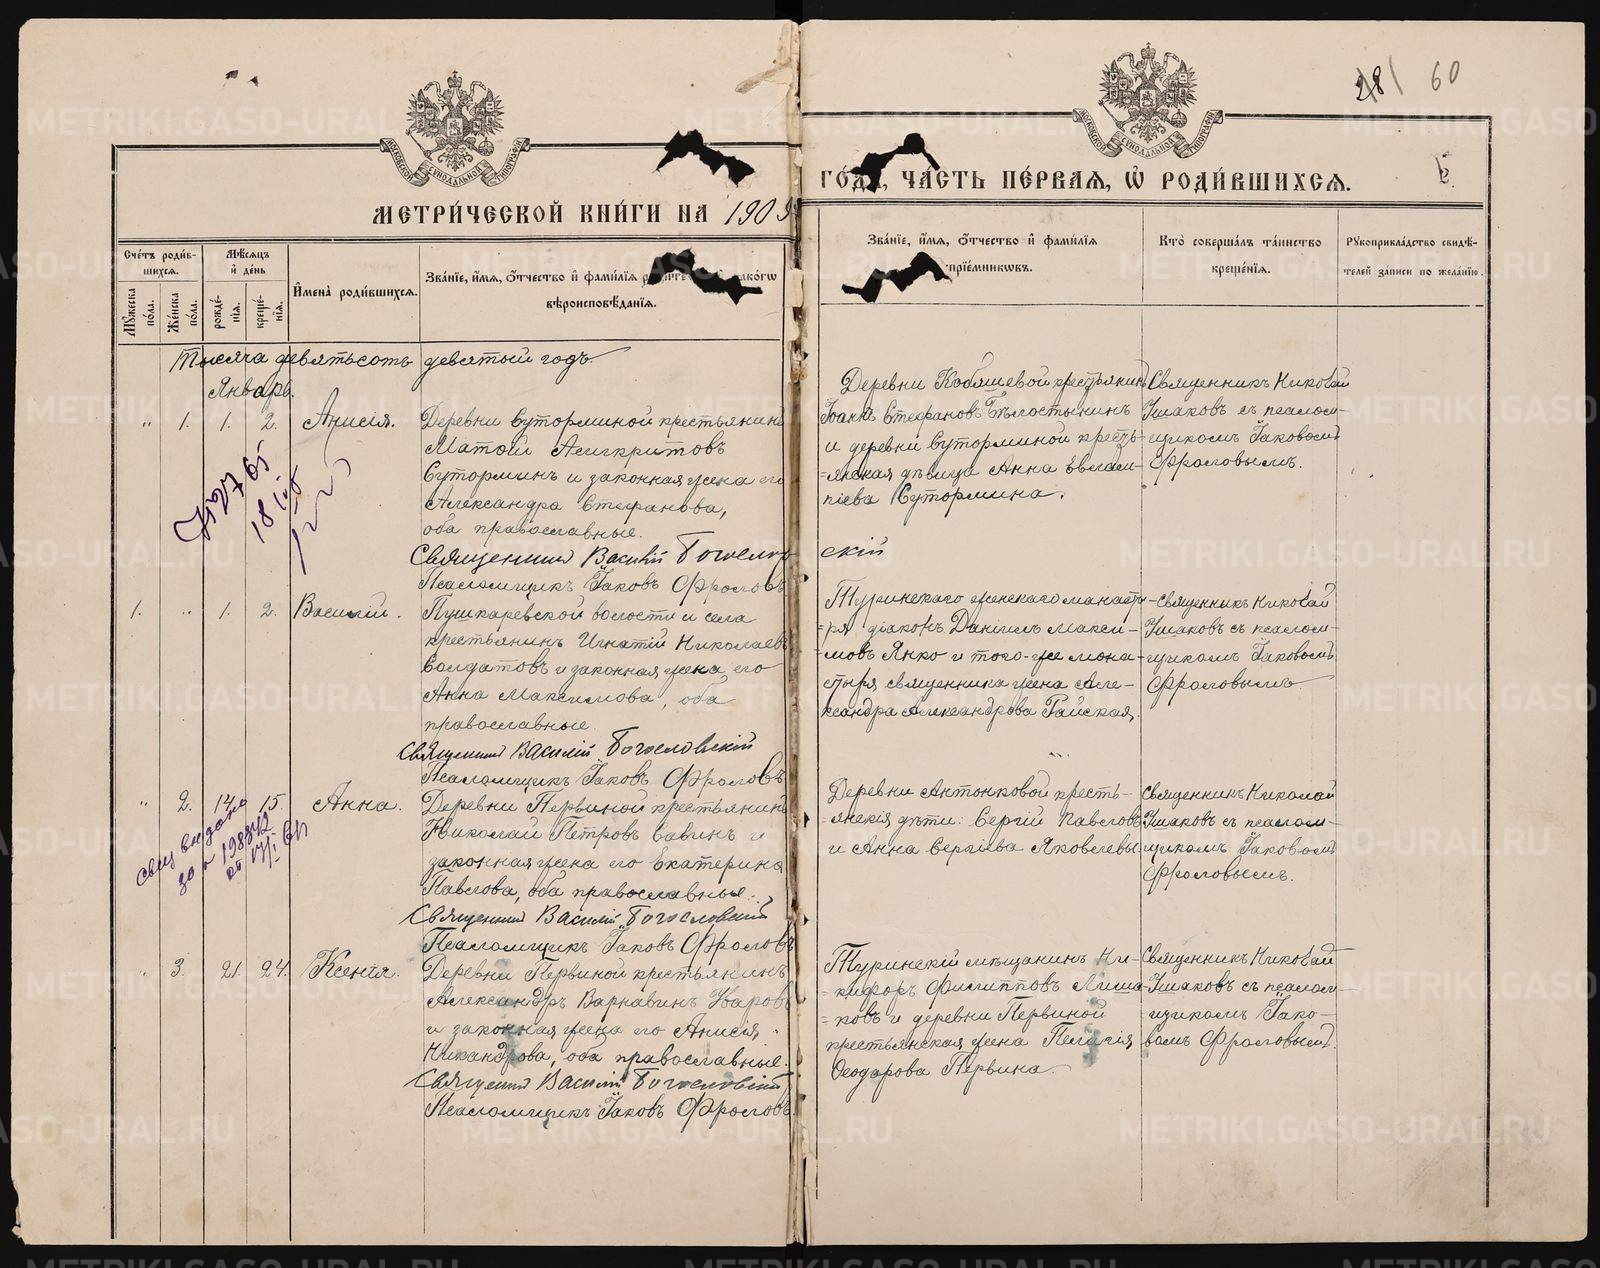 28 60
МЕТРИ́ЧЕСКОЙ КНИ́ГИ НА 1909
ГО́ДА, ЧА́СТЬ ПЕ́РВАЯ, Ѡ РОДИ́ВШИХСЯ.
Сче́тъ роди́в-
шихся.
Му́жеска
по́ла.
Же́нска
по́ла.
Мѣ́сяцъ
и̂ де́нь
рожде́-
нія.
креще́-
нія.
И̂мена̀ роди́вшихся.
Зва́нїе, и̂́мя, о̂́тчество и̂ фами́лїя
вѣроисповѣ́данїя.
Зва́нїе, и̂́мя, о̂́тчество и̂ фами́лїя
прїе́мникѡвъ.
Кто̀ соверша́лъ та́инство
креще́нїя.
Рукоприкла́дство свидѣ́-
телей за́писи по жела́нїю.
Тысяча девятьсотъ девятый годъ
Январь.
„ 1. 1. 2. Анисія.
Деревни Сутörминой крестьянинъ
Сутörминъ и законная жена его
Александра Стефанова,
оба православные.
Священникъ Василій Богословскій
Псаломщикъ Іаковъ Фроловъ
Деревни Кобяшевой крестьянинъ
Іоаннъ Стефановъ Бѣлостынинъ
и деревни Суторминой кресть-
янская дѣвица Анна Евлам-
піева Сутормина.
Священникъ Николай
Ушаковъ съ псалом-
щикомъ Іаковомъ
Фроловымъ.
1. „ 1. 2. Василій.
Пушкаревской волости и села
крестьянинъ Игнатій Николаевъ
Солдатовъ и законная жена его
Анна Максимова, оба
православные.
Священникъ Василій Богословскій
Псаломщикъ Іаковъ Фроловъ
Туринскаго женскаго монасты-
ря діаконъ Даніилъ Макси-
мовъ Янко и того-же мона-
стыря священника жена Але-
ксандра Александрова Гайская.
Священникъ Николай
Ушаковъ съ псалом-
щикомъ Іаковомъ
Фроловымъ
„ 2. 14. 15. Анна.
Деревни Первиной крестьянинъ
Николай Петровъ Савинъ и
законная жена его Екатерина
Павлова, оба православные.
Священникъ Василій Богословскій
Псаломщикъ Іаковъ Фроловъ
Деревни Антонковой кресть-
янскія дѣти: Сергій Павловъ
и Анна Сергіева Яковлевы
Священникъ Николай
Ушаковъ съ псалом-
щикомъ Іаковомъ
Фроловымъ.
„ 3. 21. 24. Ксенія.
Деревни Первиной крестьянинъ
Александръ Варнавинъ Уваровъ
и законная жена его Анисія
Никандрова, оба православные.
Священникъ Василій Богословскій
Псаломщикъ Іаковъ Фроловъ
Туринскій мѣщанинъ Ни-
кифоръ Филипповъ Лиша-
ковъ и деревни Первиной
крестьянская жена Пелагія
Ѳеодорова Первина.
Священникъ Николай
Ушаковъ съ псалом-
щикомъ Іако-
вомъ Фроловымъ.